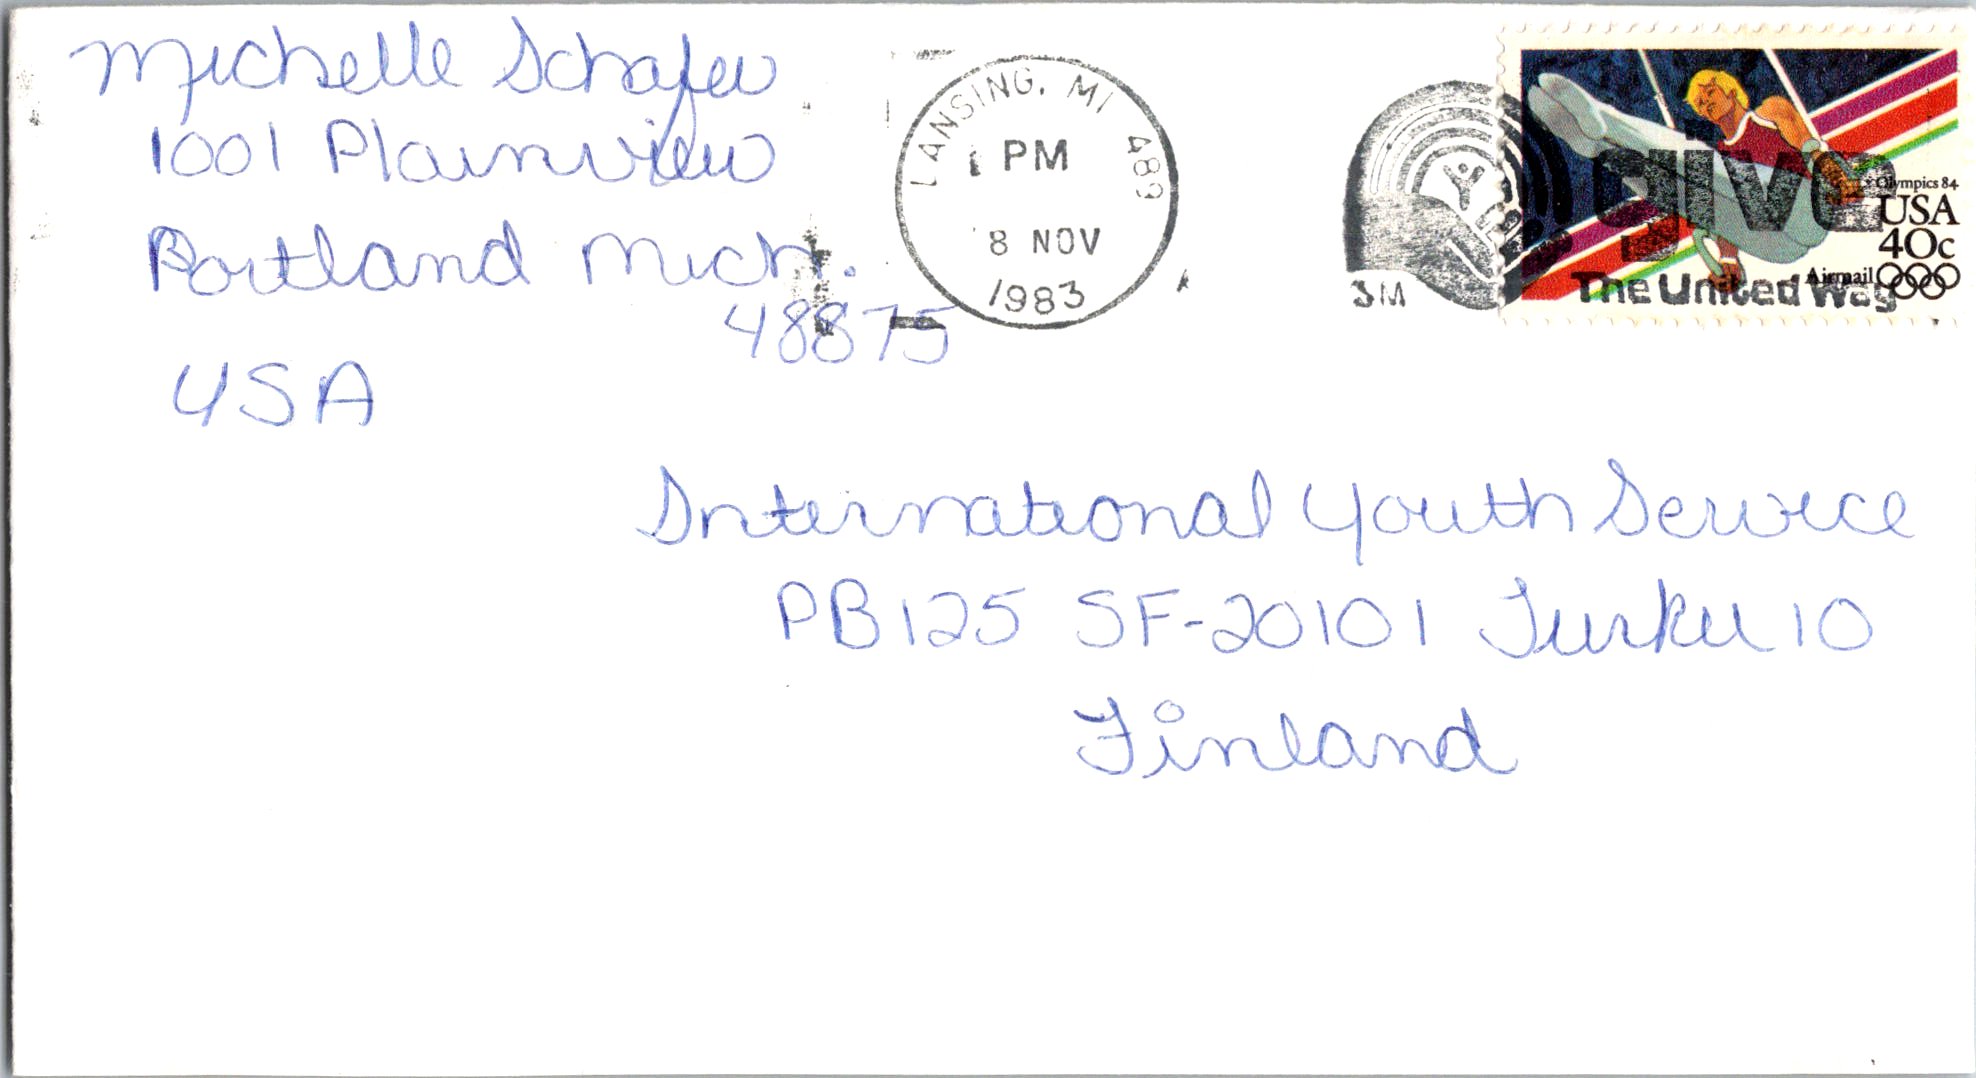 Michelle Schafer
1001 Plainview
Portland Mich.
48875
USA
LANSING, MI 489
PM
8 NOV
1983
3M
give
The United Way
Olympics 84
USA
40c
Airmail
International Youth Service
PB125 SF-20101 Turku 10
Finland